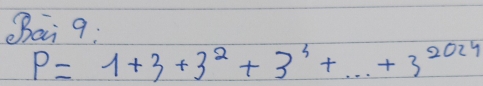 Bài 9:
P = 1+3+3² + 3³ + ... + 3²⁰²⁴